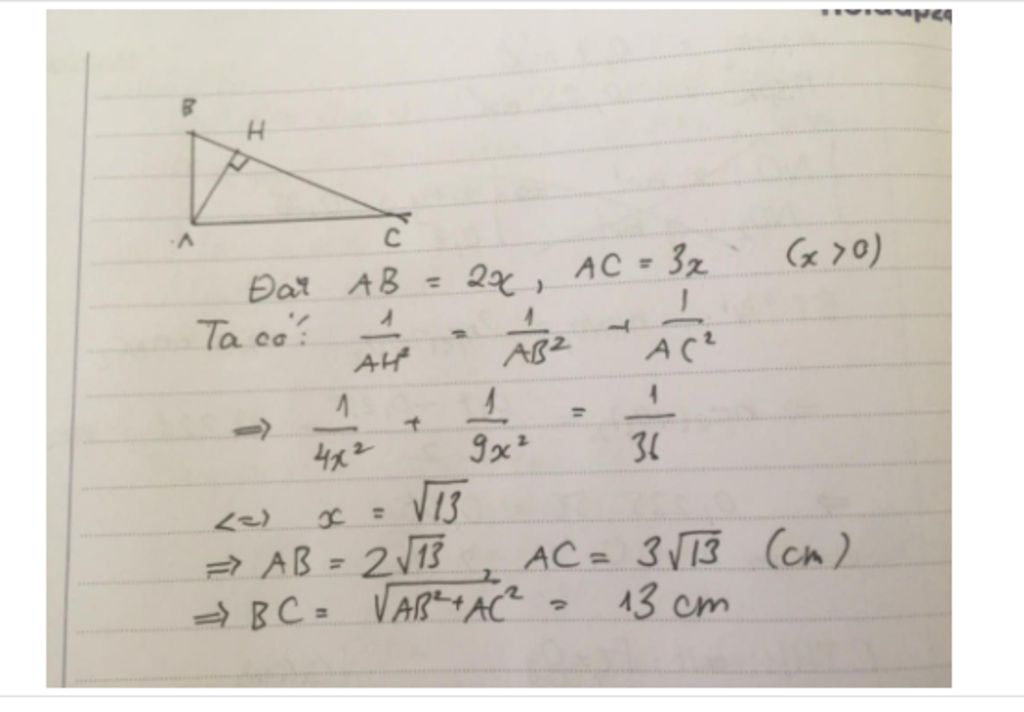 B
H
A
C
Đặt AB = 2x, AC = 3x (x > 0)
Ta có: 1/AH² = 1/AB² + 1/AC²
=> 1/4x² + 1/9x² = 1/36
<=> x = √13
=> AB = 2√13, AC = 3√13 (cm)
=> BC = √AB² + AC² = 13 cm